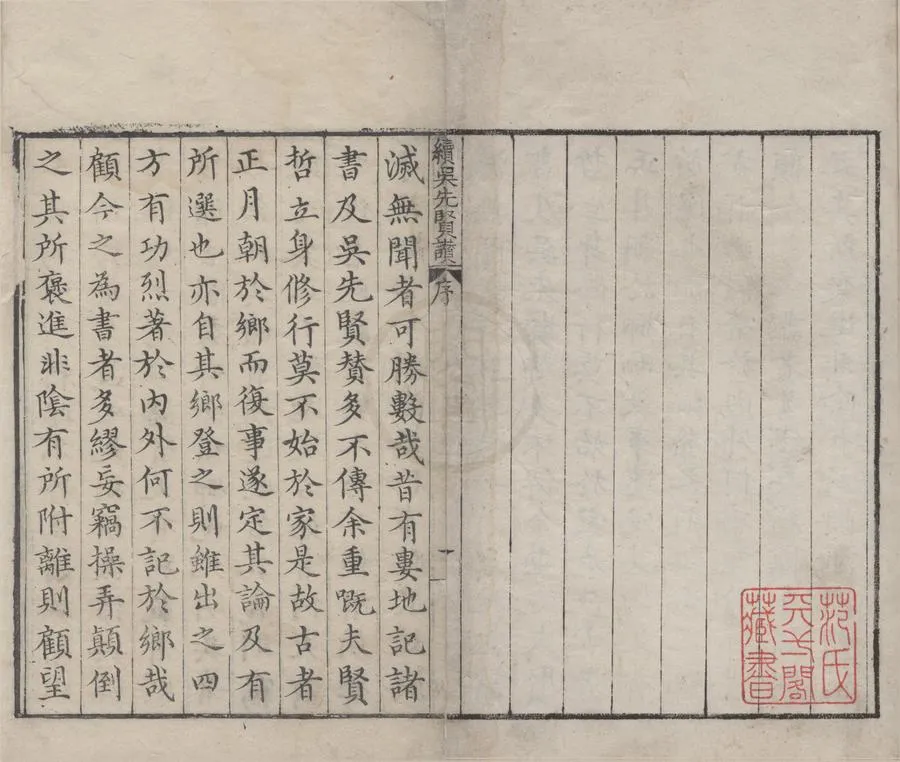 范氏
天一閣
藏書
續吳先賢讃
序
十一
滅無聞者可勝數哉昔有婁地記諸
書及吳先賢贊多不傳余重嘅夫賢
哲立身修行莫不始於家是故古者
正月朝於鄉而復事遂定其論及有
所選也亦自其鄉登之則雖出之四
方有功烈著於內外何不記於鄉哉
顧今之為書者多繆妄竊操弄顛倒
之其所褒進非陰有所附離則顧望